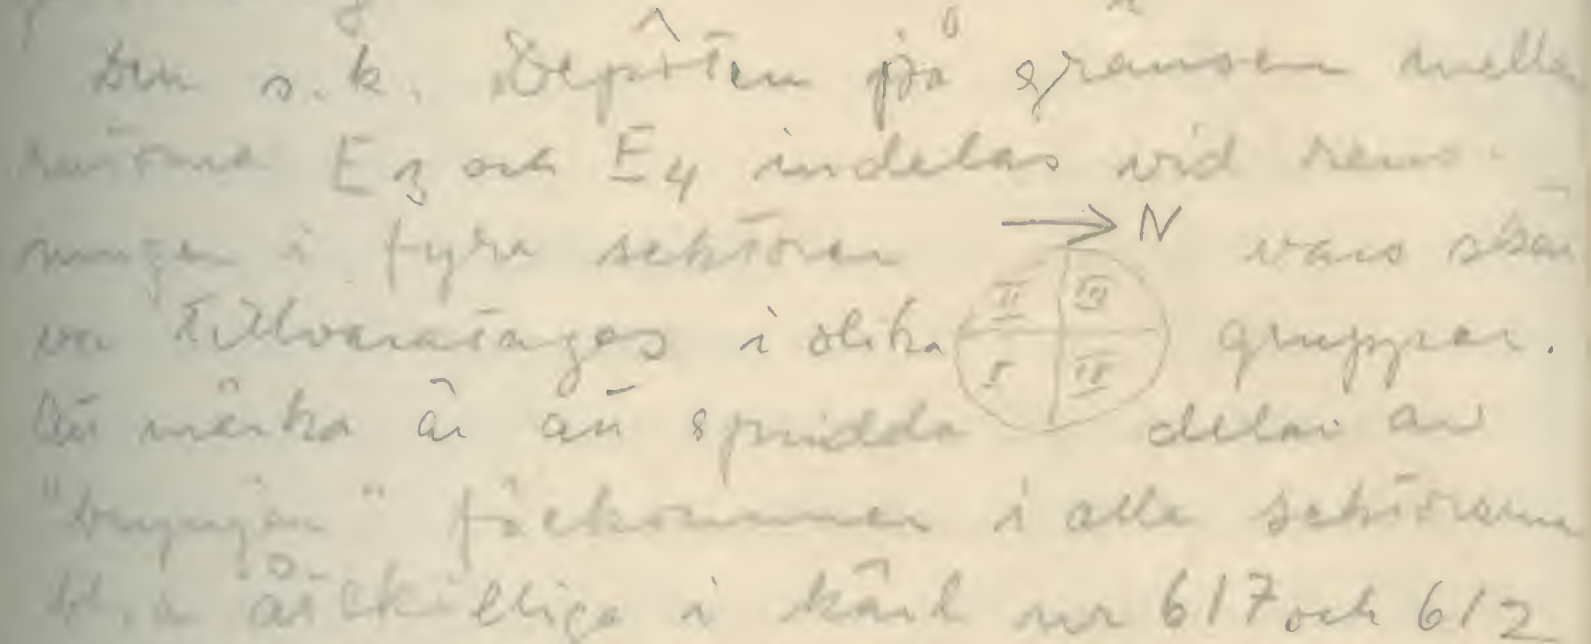 Den s.k. Depôten på gränsen mella
rutorna E3 och E4 indelas vid rens-
ningen i fyra sektorer → N vars sten
II III
var Tillvaratages i olika grupper.
I IV
Att märka är att spridda delar av
förekommer i alla sektorerna
bl.a. åtskilliga i kärl nr 617 och 612